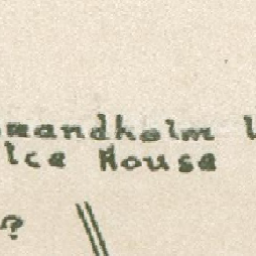 mandholm
Ice House
?